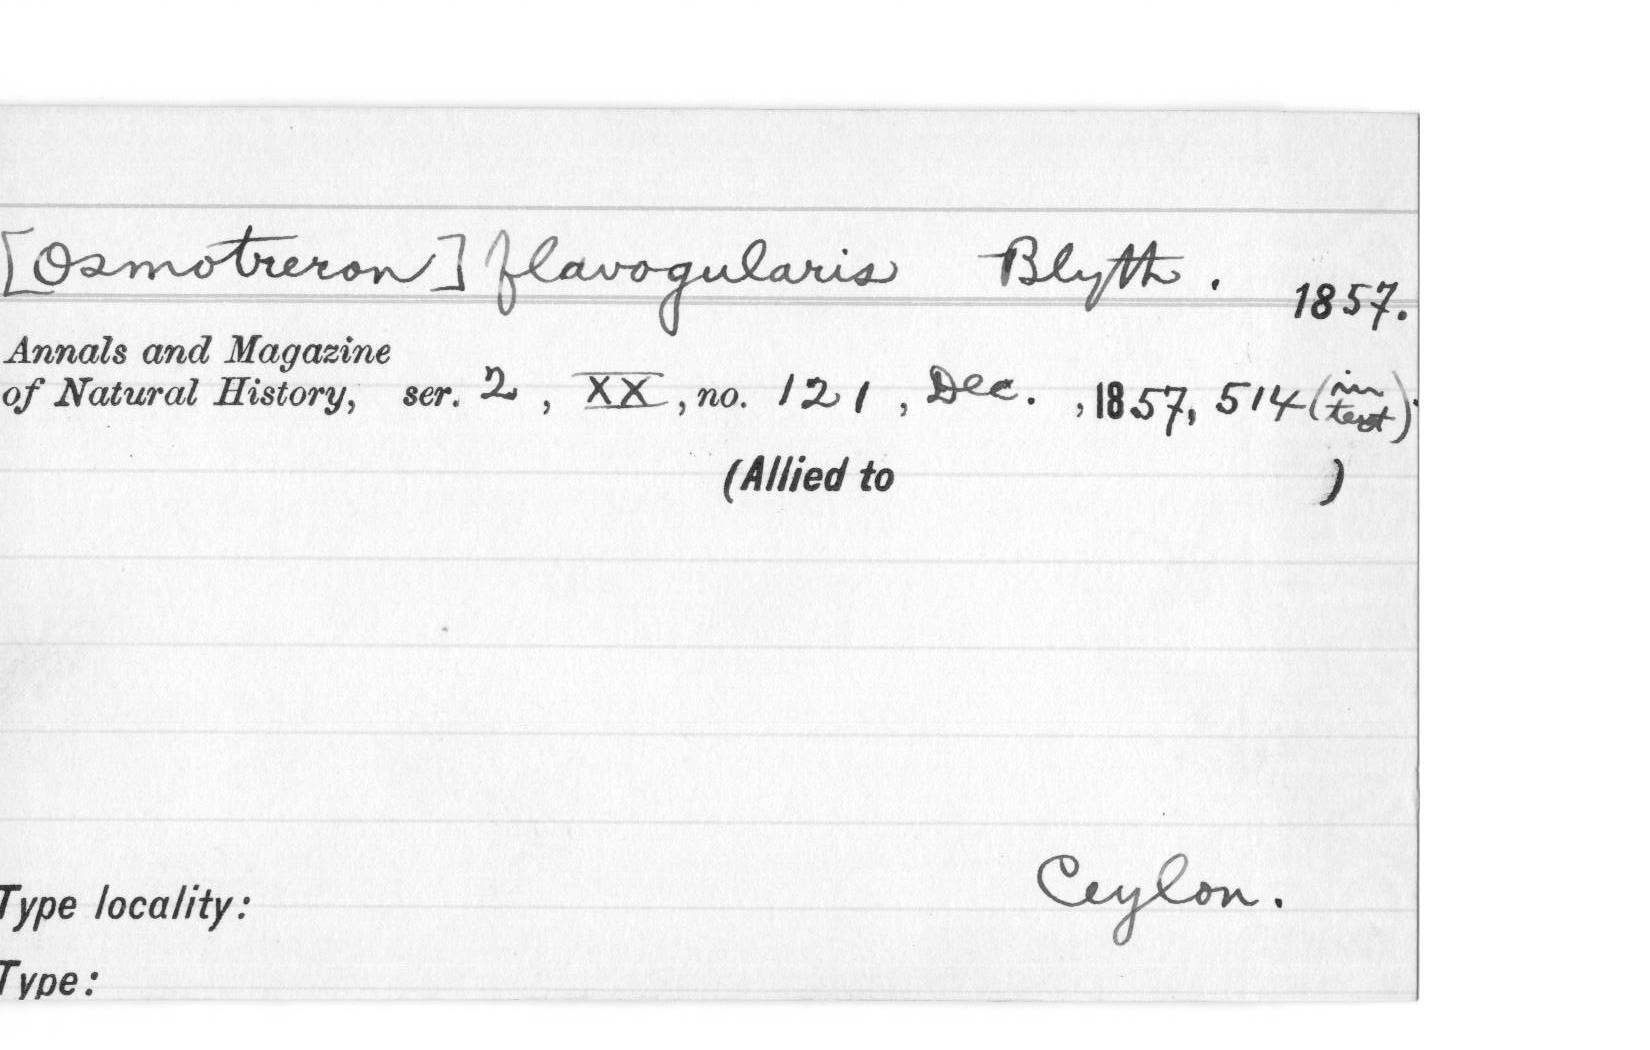 [Osmotreron] flavogularis Blyth. 1857.
Annals and Magazine
of Natural History, ser. 2, XX, no. 121, Dec. , 1857, 514 (in text).
(Allied to )
Type locality: Ceylon.
Type: